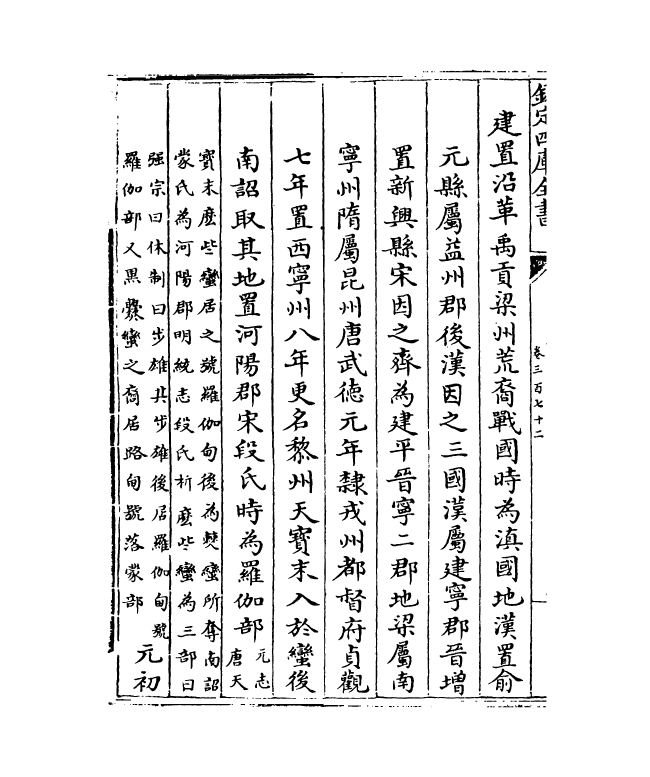 欽定四庫全書
卷三百七十二
建置沿革禹貢梁州荒裔戰國時為滇國地漢置俞
元縣屬益州郡後漢因之三國漢屬建寧郡晉增
置新興縣宋因之齊為建平晉寧二郡地梁屬南
寧州隋屬昆州唐武徳元年隸戎州都督府貞觀
七年置西寧州八年更名黎州天寶末入於蠻後
南詔取其地置河陽郡宋段氏時為羅伽部
元志
唐天
寶末麽些蠻居之號羅伽甸後為僰蠻所奪南詔
蒙氏為河陽郡明統志段氏析麽些蠻為三部曰
强宗曰休制曰步雄其步雄後居羅伽甸號
羅伽部又黑爨蠻之裔居路甸號落蒙部
元初